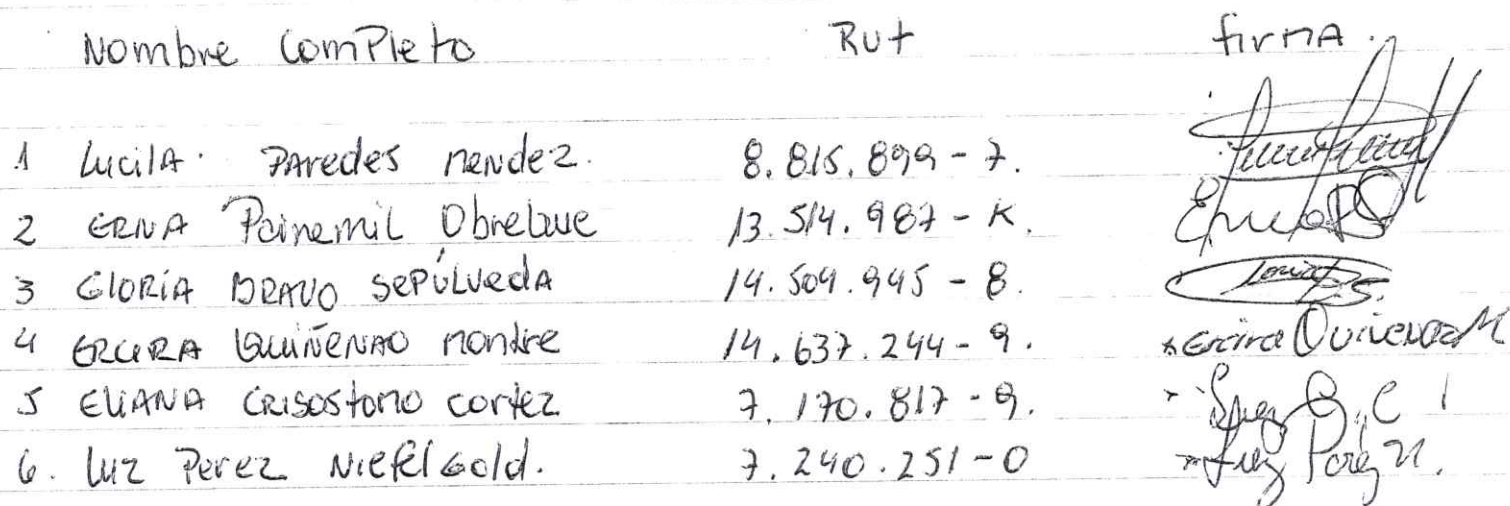 Nombre Completo Rut firma.
1 Lucila. Paredes Mendez. 8.815.899-7.
2 ERNA Painemil Obreque 13.514.987-K.
3 Gloria BRAVO Sepúlveda 14.509.945-8.
4 Quiñenao Montre 14.637.244-9. Quiñenao M
5 Eliana Crisostomo Cortez 7.170.817-9.
6. Luz Perez Niefelgold. 7.240.251-0 Luz Perez N.